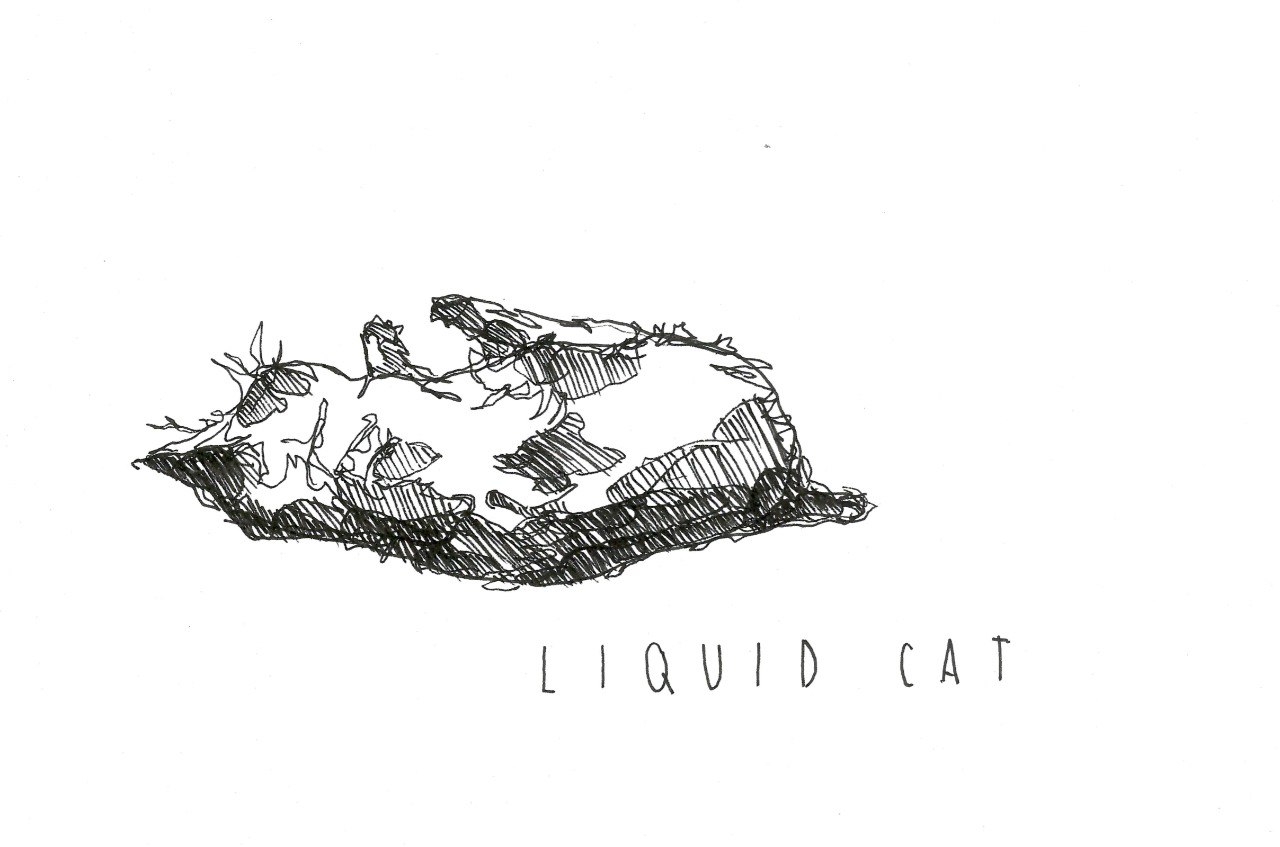 LIQUID CAT